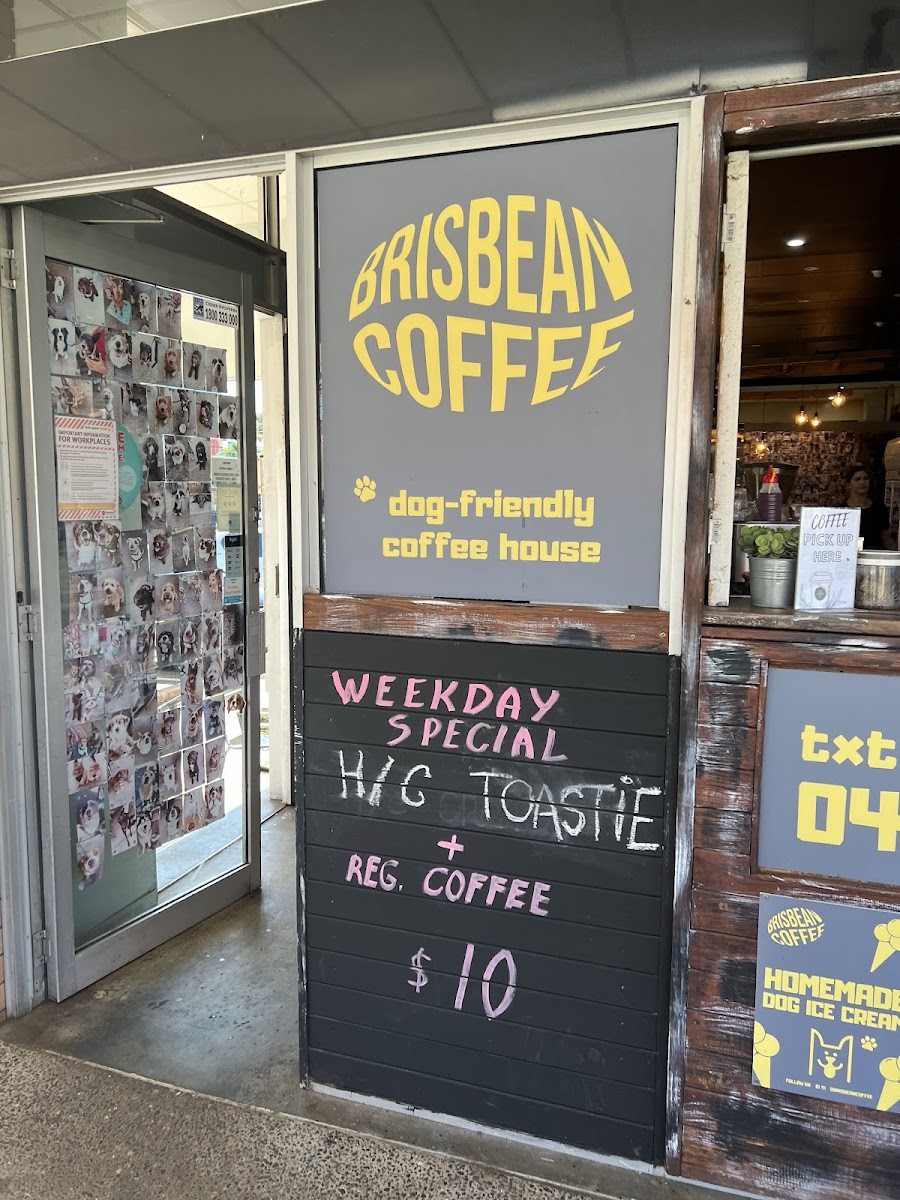 CRIME STOPPERS
1800 333 000
IMPORTANT INFORMATION
FOR WORKPLACES
BRISBEAN
COFFEE
dog-friendly
coffee house
WEEKDAY
SPECIAL
H/C TOASTIE
+
REG. COFFEE
$10
COFFEE
PICK UP
HERE
txt
04
BRISBEAN
COFFEE
HOMEMADE
DOG ICE CREAM
FOLLOW US
@BRISBEANCOFFEE